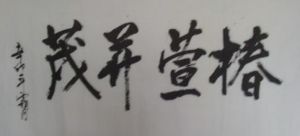 椿萱并茂